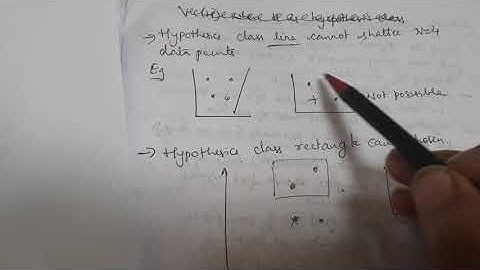 → Hypothesis class line cannot shatter N=4
data points.
Eg
Not possible
→ Hypothesis class rectangle can